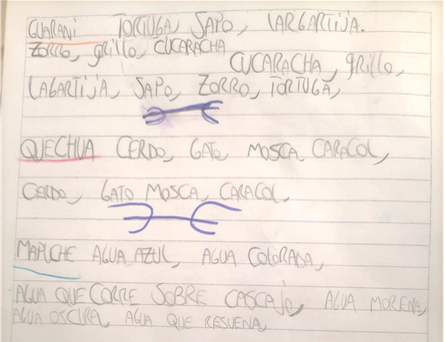 GUARANI TORTUGA, SAPO, LARGARTIJA.
ZORRO, grillo, CUCARACHA
CUCARACHA, grillo,
LAGARTIJA, SAPO, ZORRO, TORTUGA,
QUECHUA CERDO, GATO, MOSCA, CARACOL,
CERDO, GATO MOSCA, CARACOL,
MAPUCHE AGUA AZUL, AGUA COLORADA,
AGUA QUE CORRE SOBRE CASCAJO, AGUA MORENA,
AGUA OSCURA, AGUA QUE RESUENA,